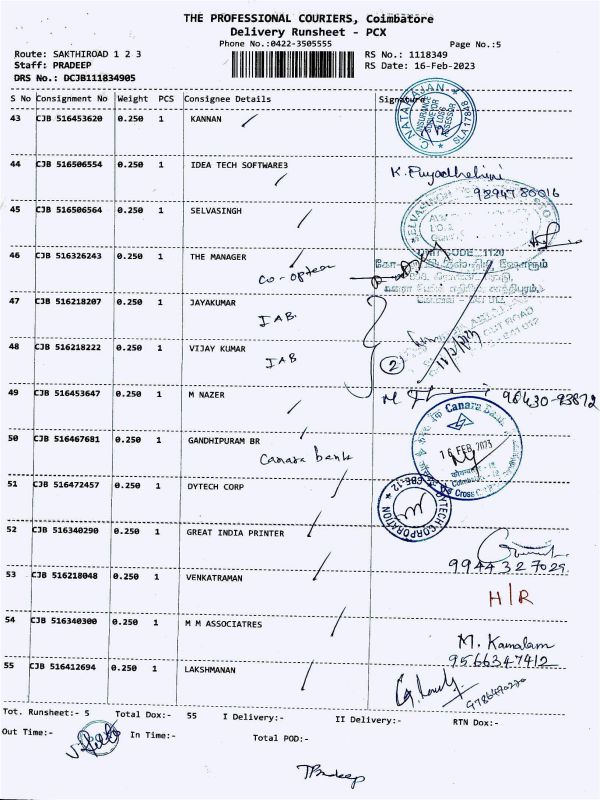 THE PROFESSIONAL COURIERS, Coimbatore
Delivery Runsheet - PCX
Phone No.:0422-3505555
Page No.:5
Route: SAKTHIROAD 1 2 3
RS No.: 1118349
Staff: PRADEEP
RS Date: 16-Feb-2023
DRS No.: DCJB111834905
S No Consignment No Weight PCS Consignee Details Signature
C. NATARAJAN
INSURANCE SURVEYOR & LOSS ASSESSOR
SLA 17848
43 CJB 516453620 0.250 1 KANNAN
44 CJB 516506554 0.250 1 IDEA TECH SOFTWARE3
9894780016
45 CJB 516506564 0.250 1 SELVASINGH
SELVASINGH
CODE 1120
46 CJB 516326243 0.250 1 THE MANAGER
co-optex
47 CJB 516218207 0.250 1 JAYAKUMAR
IAB
48 CJB 516218222 0.250 1 VIJAY KUMAR
IAB
2
49 CJB 516453647 0.250 1 M NAZER
50 CJB 516467681 0.250 1 GANDHIPURAM BR
Canara bank
Canara Bank
16 FEB 2023
51 CJB 516472457 0.250 1 DYTECH CORP
DYTECH CORPORATION
CBE-12
52 CJB 516340290 0.250 1 GREAT INDIA PRINTER
9944327029
53 CJB 516218048 0.250 1 VENKATRAMAN
H/R
54 CJB 516340300 0.250 1 M M ASSOCIATRES
M. Kamalam
9566347412
55 CJB 516412694 0.250 1 LAKSHMANAN
9786490270
Tot. Runsheet:- 5 Total Dox:- 55 I Delivery:- II Delivery:- RTN Dox:-
Out Time:- In Time:- Total POD:-